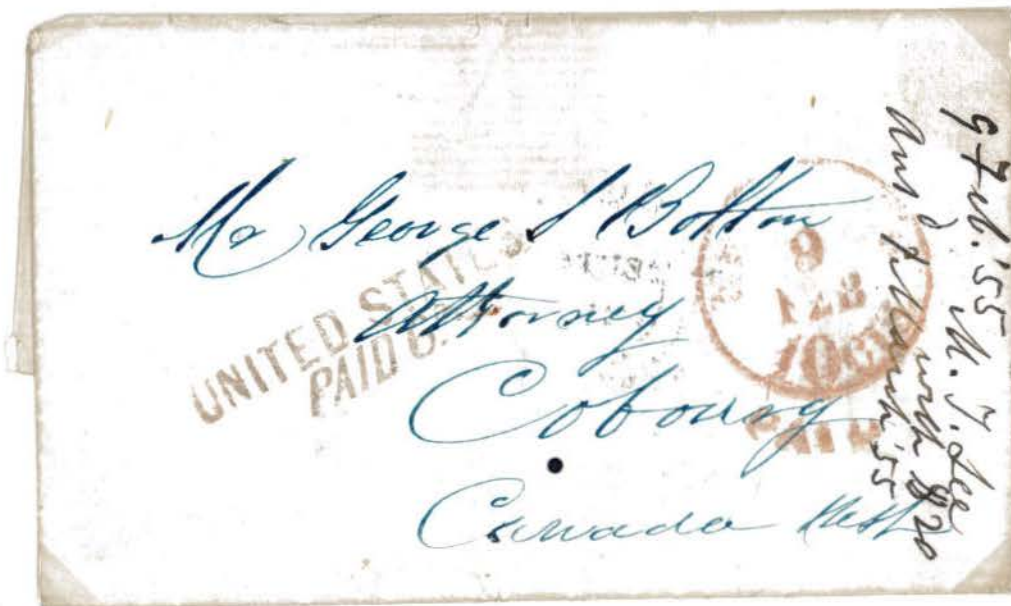 Mr George S Bolton
Attorney
Cobourg
Canada West
UNITED STATES
PAID 6
9
FEB
10 cts
PAID
9 Feb. '55 M. T. Lee
Ans'd 7 March '55 with $20